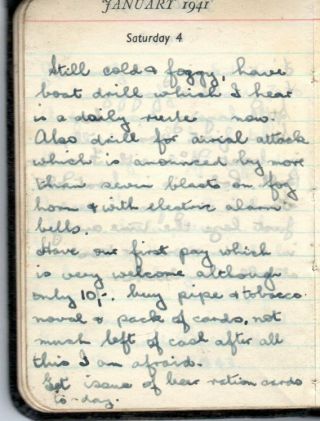 JANUARY 1941
Saturday 4
Still cold & foggy, have
boat drill which I hear
is a daily now.
Also drill for airial attack
which is anounced by more
than seven blasts on fog
horn & with electric alarm
bells.
Have our first pay which
is very welcome although
only 10/-. buy pipe & tobacco
novel & pack of cards, not
much left of cash after all
this I am afraid.
Get issue of beer ration cards
to-day.